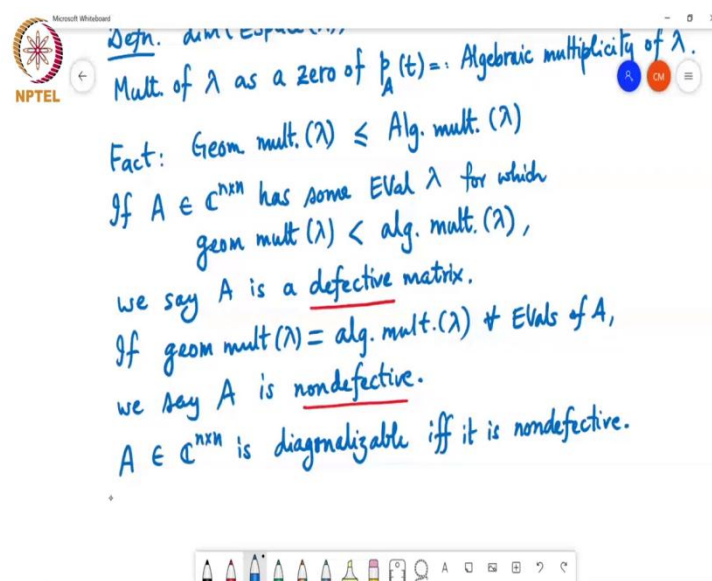 Microsoft Whiteboard
Defn.
Mult. of λ as a zero of p_A(t) =: Algebraic multiplicity of λ.
NPTEL
CM
Fact: Geom mult. (λ) ≤ Alg. mult. (λ)
If A ∈ ℂ^{n×n} has some EVal λ for which
geom mult (λ) < alg. mult. (λ),
we say A is a defective matrix.
If geom mult (λ) = alg. mult. (λ) ∀ EVals of A,
we say A is nondefective.
A ∈ ℂ^{n×n} is diagonalizable iff it is nondefective.